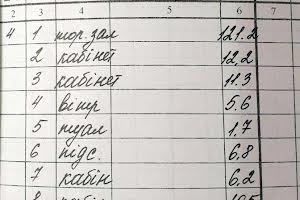 2 3 4 5 6 7
4 1 тор. зал 121.2
2 кабінет 12,2
3 кабінет 11.3
4 вітр 5.6
5 туал 1.7
6 підс. 6,8
7 кабін 6,2
8